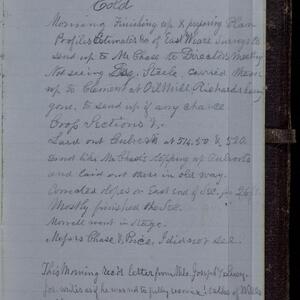 Cold
Morning Finishing up & preparing Plan
Profiles Estimates &c of East Weare Surveys to
send up to Mr Chase to Directors Meeting
Not seeing Esq. Steele, carried them
up to Clement at Oil Mill, Richards being
gone, to send up if any chance
Cross Sections &c
Laid out Culverts at 514.50 & 520
do not like Mr Chase's stepping up Culverts
and laid out these in old way.
on East End of Sec. for
Mostly finished these.
Morrill went in Stage.
Messrs Chase & Price, I did not see.
This Morning Rec'd letter from
for writer as if he was not fully